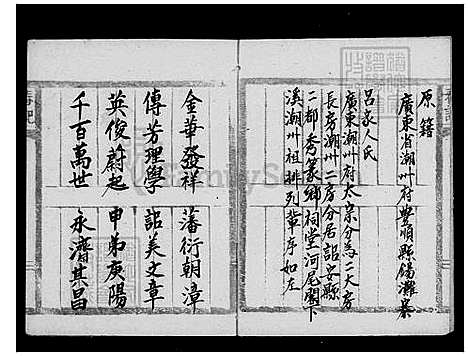 原籍
廣東省潮州府豐順縣錫灘寨
呂家人氏
廣東潮州府太宗分為二大房
長房潮州二房分居詔安縣
二都秀篆鄉祠堂河尾閣下
溪潮州祖排列輩序如左
金華發祥 藩衍朝漳
傳芳理學 詔美文章
英俊蔚起 申弟庚陽
千百萬世 永濟其昌